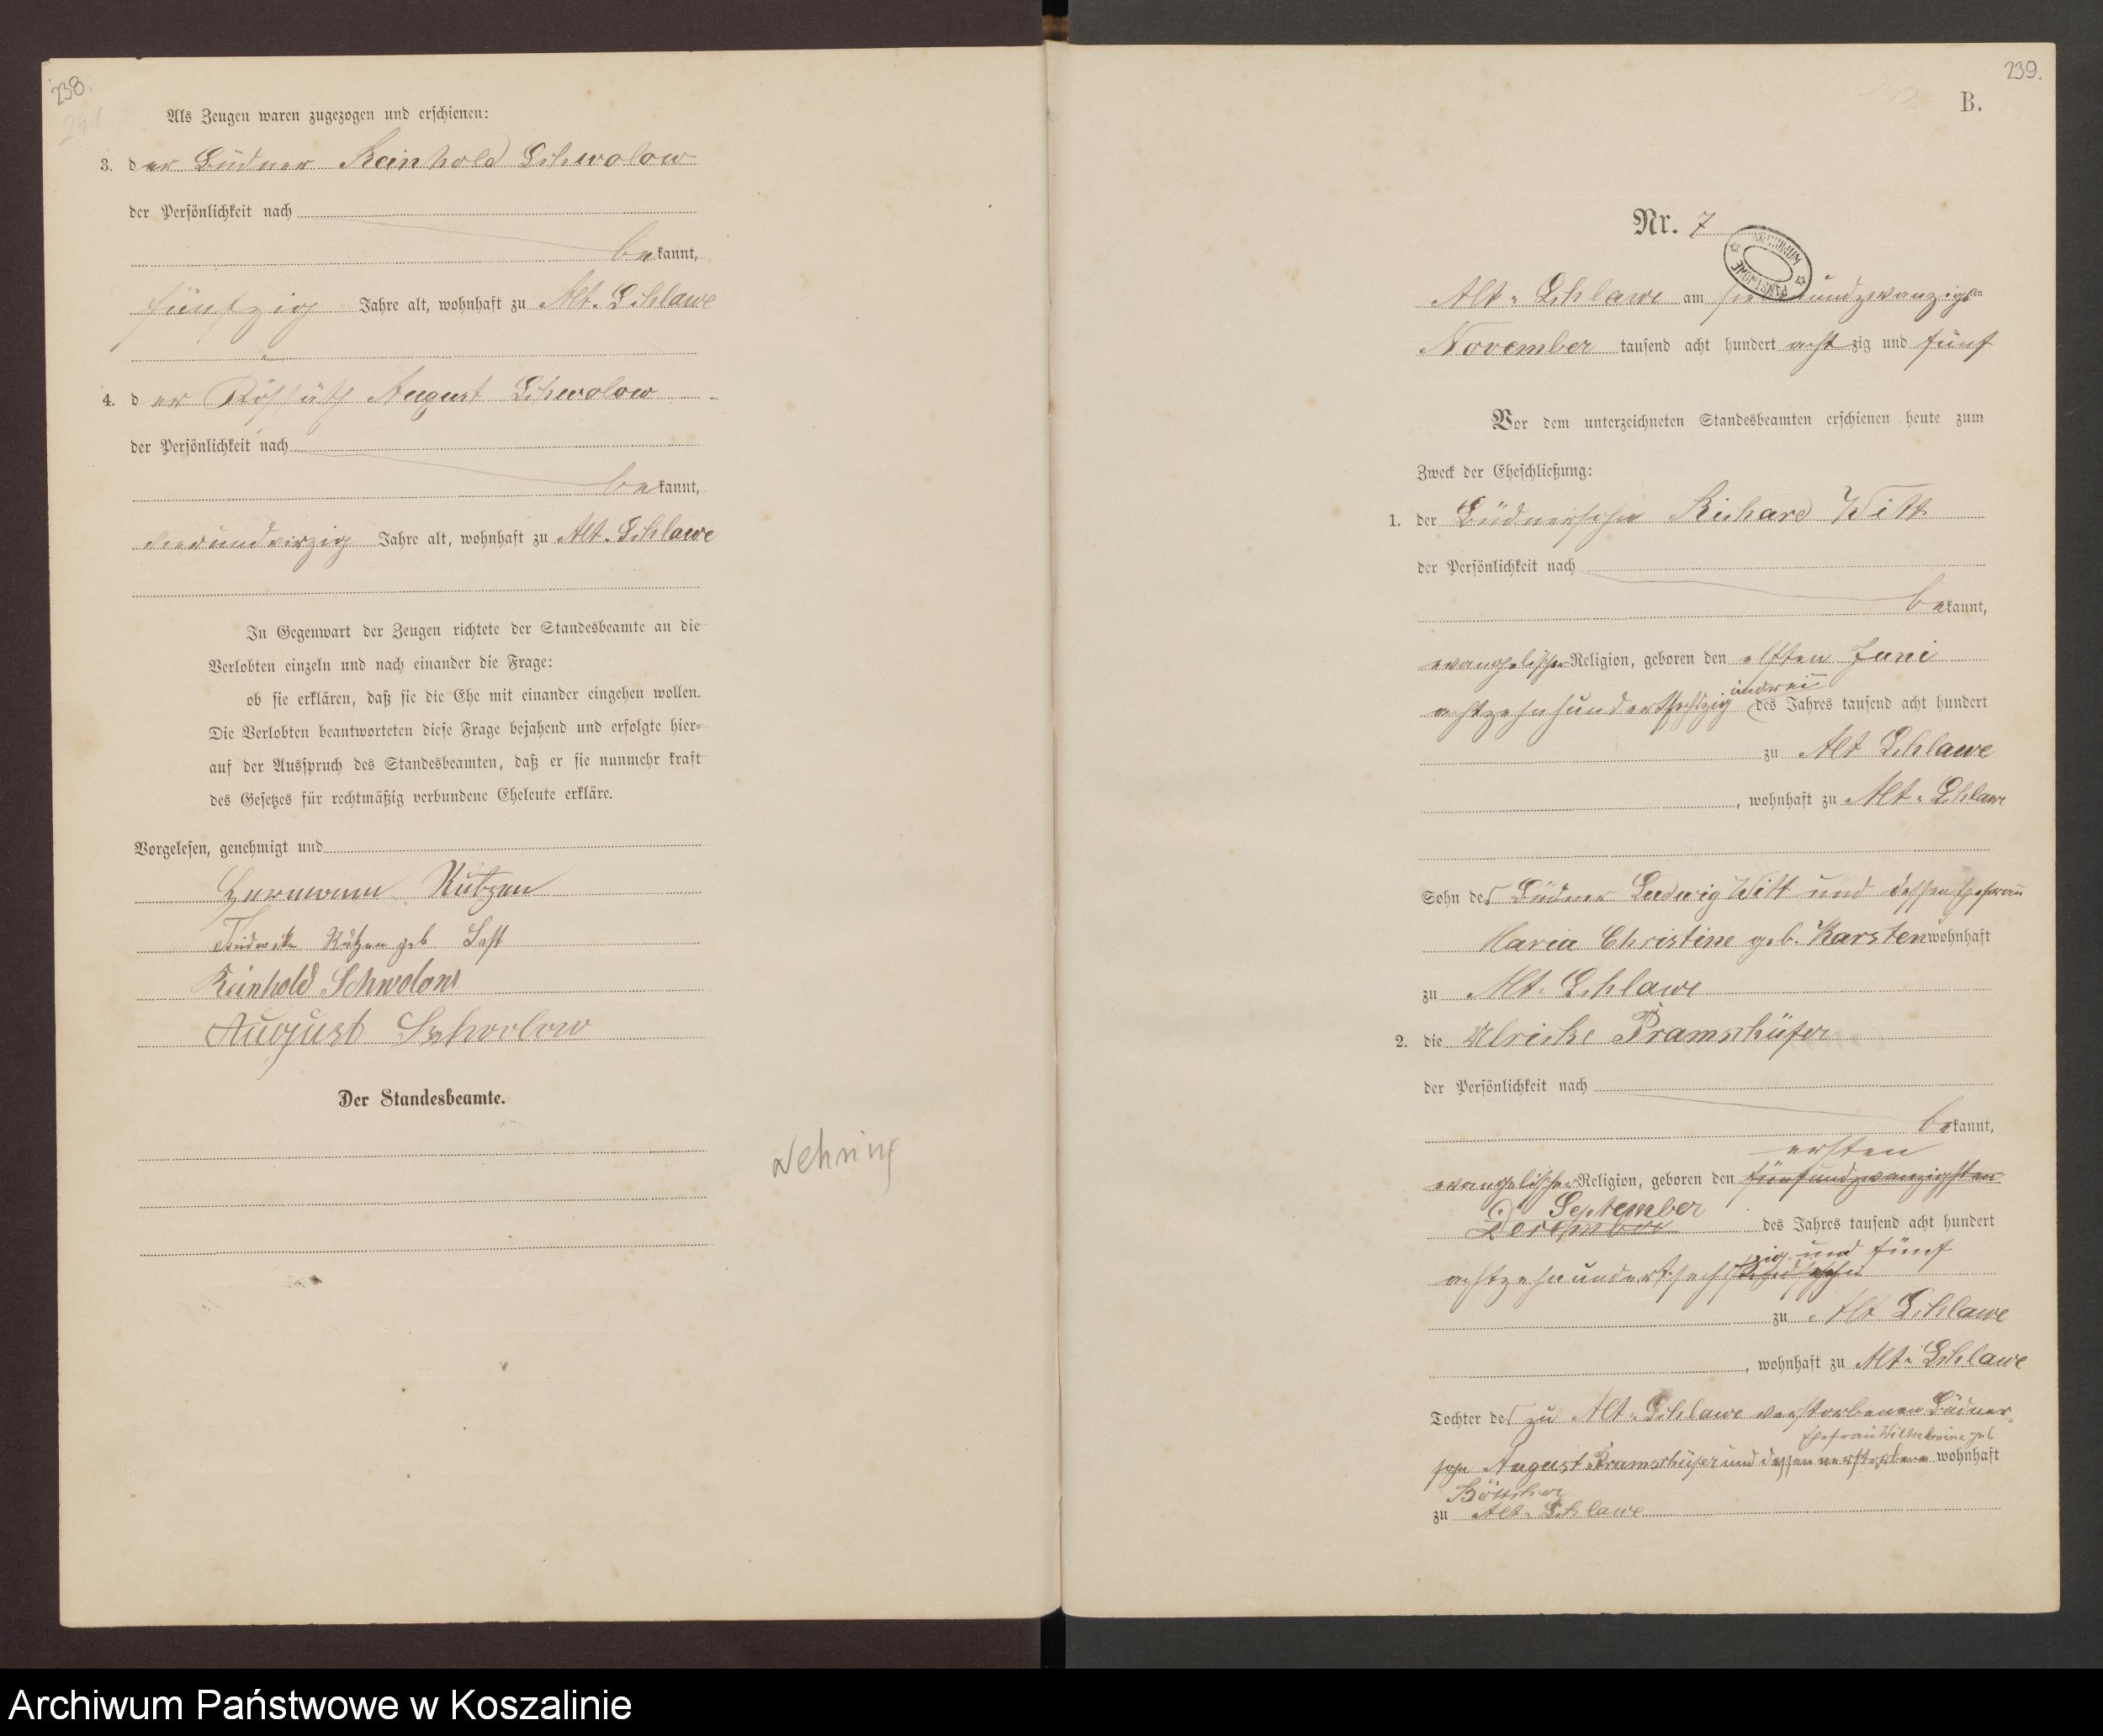 238.
Als Zeugen waren zugezogen und erschienen:
3. der Büdner Reinhold Schwolow
der Persönlichkeit nach
bekannt,
fünfzig Jahre alt, wohnhaft zu Alt-Schlawe
4. der August Schwolow
der Persönlichkeit nach
bekannt,
vierundvirzig Jahre alt, wohnhaft zu Alt-Schlawe
In Gegenwart der Zeugen richtete der Standesbeamte an die
Verlobten einzeln und nach einander die Frage:
ob sie erklären, daß sie die Ehe mit einander eingehen wollen.
Die Verlobten beantworteten diese Frage bejahend und erfolgte hier-
auf der Ausspruch des Standesbeamten, daß er sie nunmehr kraft
des Gesetzes für rechtmäßig verbundene Eheleute erkläre.
Vorgelesen, genehmigt und
Hermann Kützen
Kützen geb
Reinhold Schwolow
August Schwolow
Der Standesbeamte.
Nehring
239.
B.
Nr. 7
ARCHIWUM PAŃSTWOWE
Alt-Schlawe am undzwanzigsten
November tausend acht hundert achtzig und fünf
Vor dem unterzeichneten Standesbeamten erschienen heute zum
Zweck der Eheschließung:
1. der Büdnersohn Richard Witt
der Persönlichkeit nach
bekannt,
evangelischer Religion, geboren den elften Juni
undzwei
achtzehnhundertsechszig des Jahres tausend acht hundert
zu Alt Schlawe
, wohnhaft zu Alt-Schlawe
Sohn des Büdner Ludwig Witt und dessen Ehefrau
Maria Christine geb. Karsten wohnhaft
zu Alt-Schlawe
2. die Ulricke Pramschüfer
der Persönlichkeit nach
bekannt,
ersten
evangelischer Religion, geboren den fünfundzwanzigsten
September
Dezember des Jahres tausend acht hundert
zig und fünf
achtzehnundertsechs
zu Alt Schlawe
, wohnhaft zu Alt-Schlawe
Tochter des zu Alt-Schlawe verstorbenen Büdner-
Ehefrau Wilhelmine geb
sohn August Pramschüfer und dessen verstorbene wohnhaft
Böttcher
zu Alt-Schlawe
Archiwum Państwowe w Koszalinie